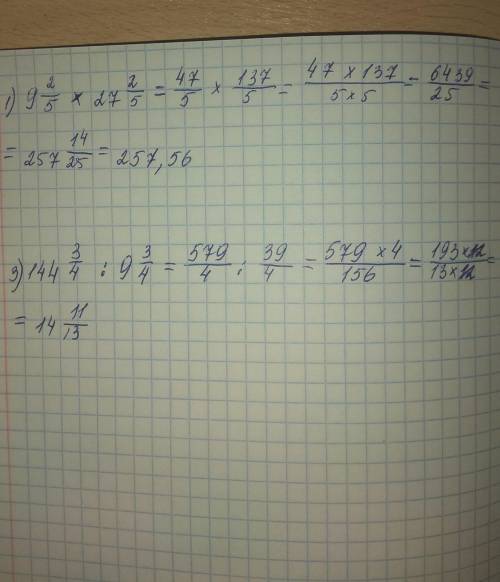 1) 9 2/5 × 27 2/5 = 47/5 × 137/5 = 47 × 137/5 × 5 = 6439/25 =
= 257 14/25 = 257,56
3) 144 3/4 : 9 3/4 = 579/4 : 39/4 = 579 × 4/156 = 193 × 12/13 × 12 =
= 14 11/13